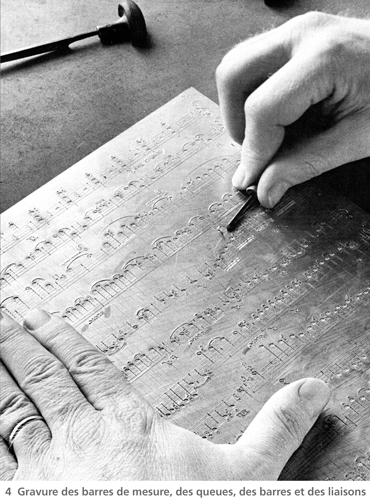 4 Gravure des barres de mesure, des queues, des barres et des liaisons